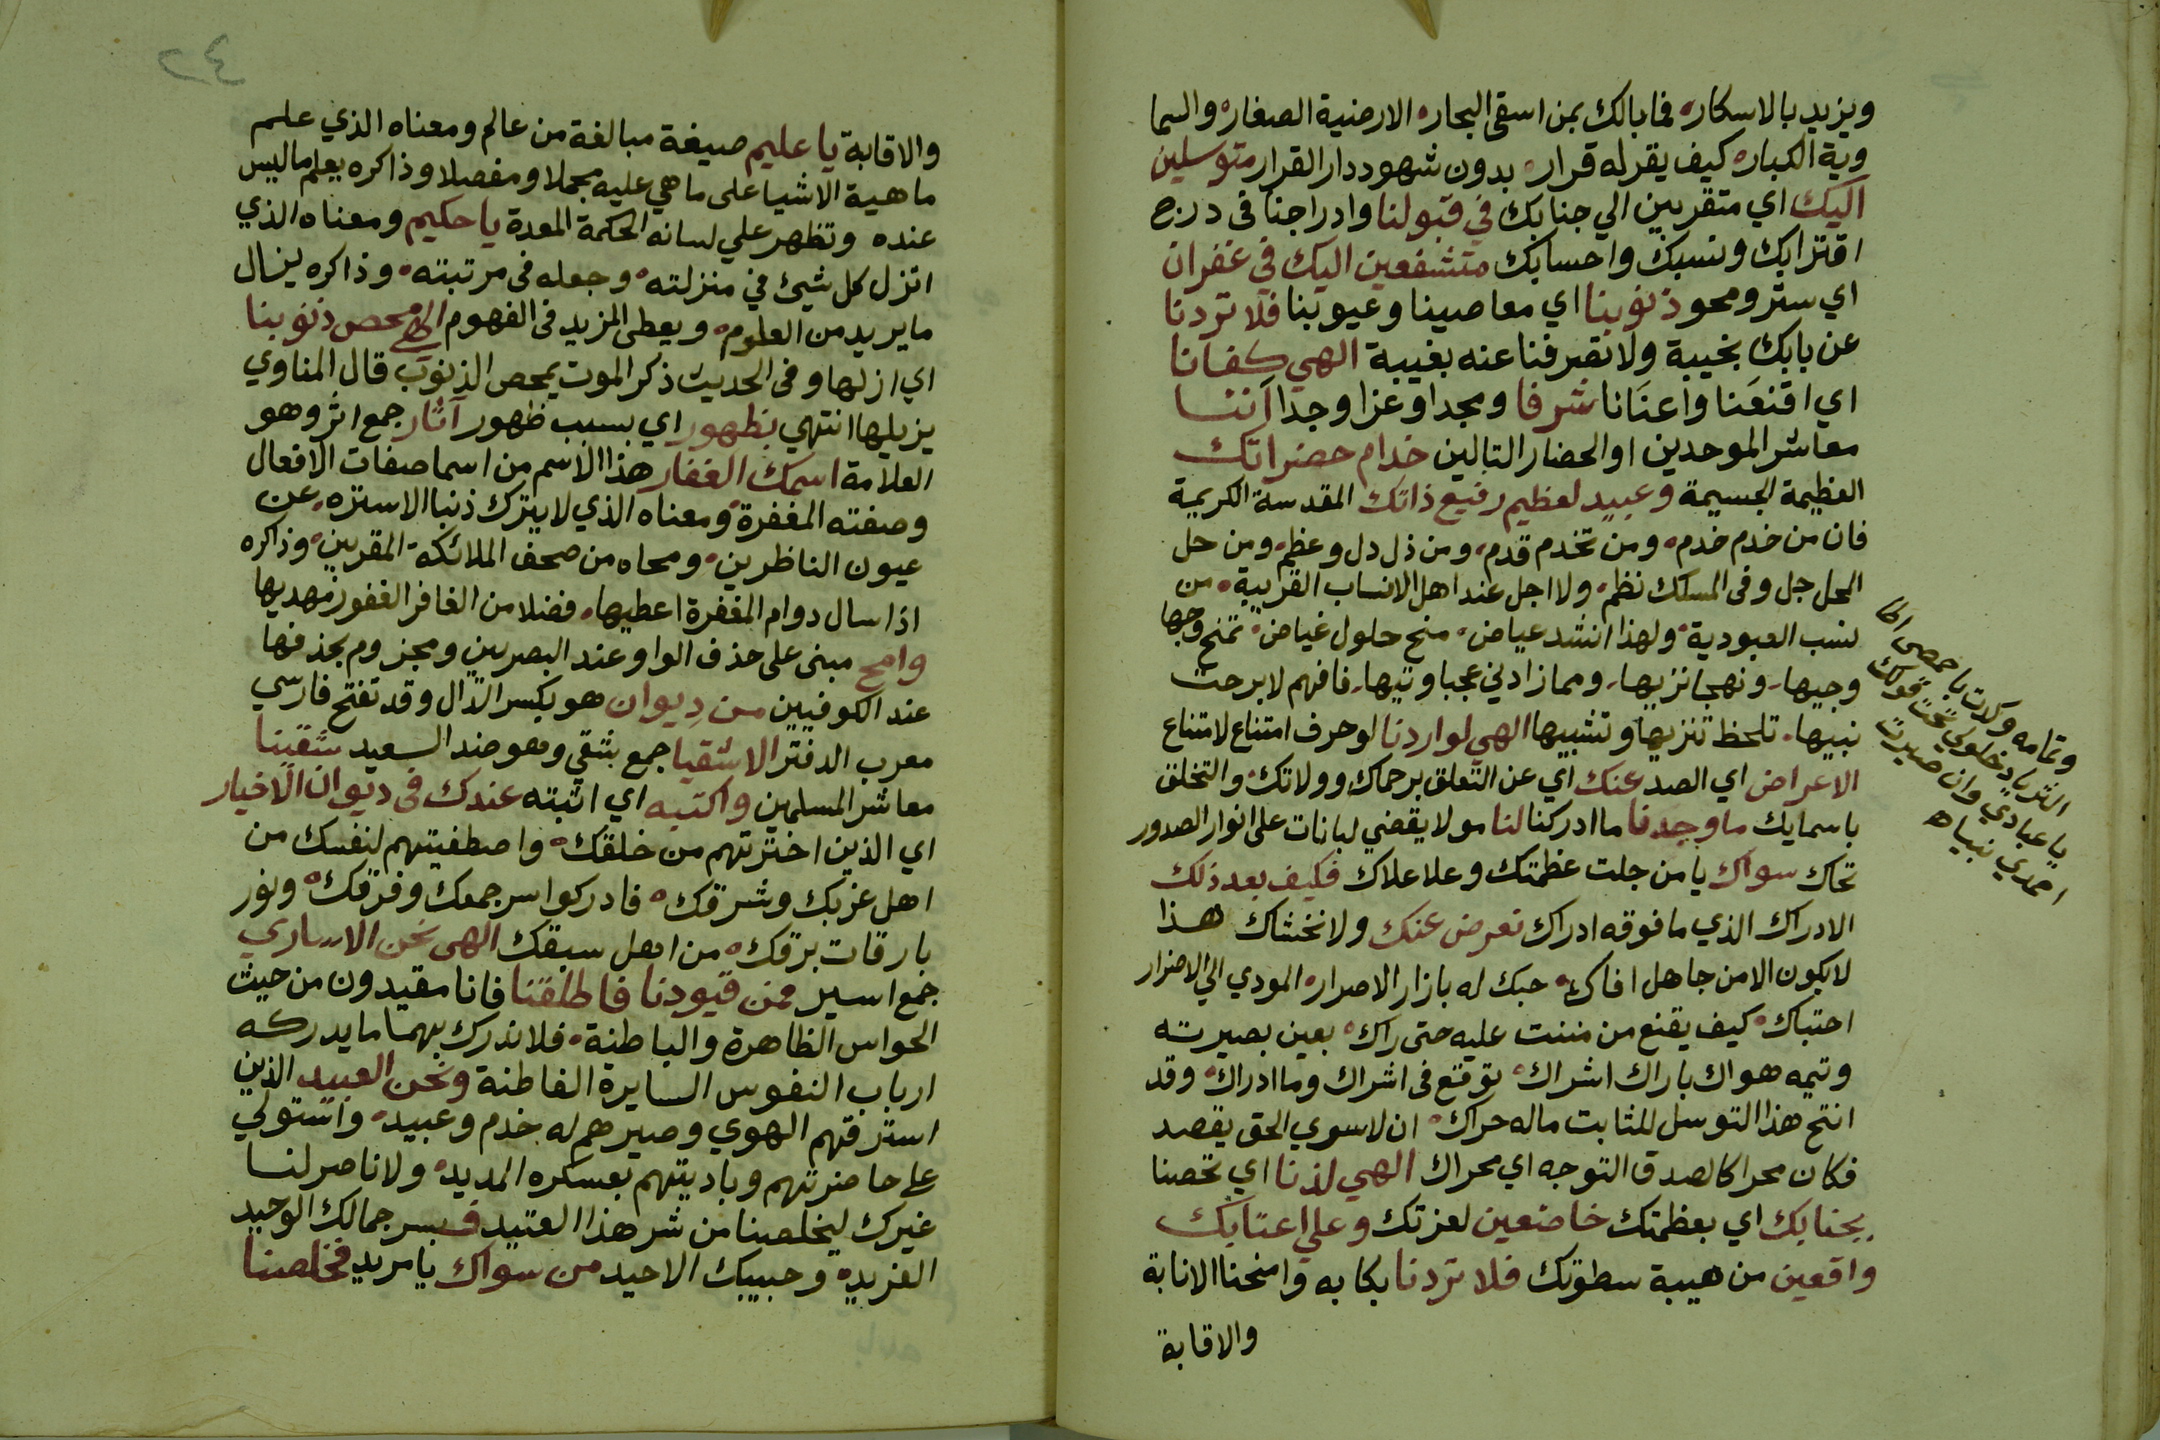 ويزيد بالاسكاره فما بالك بمن اسقي البحاره الارضية الصغاره والسما
وية الكباره كيف يقر له قراره بدون شهود دار القرار متوسلين
اليك اي متقربين الي جنابك في قبولنا وادراجنا في درج
اقترابك ونسبك واحسابك متشفعين اليك في غفران
اي ستر ومحو ذنوبنا اي معاصينا وعيوبنا فلا تردنا
عن بابك بخيبة ولا تصرفنا عنه بغيبة الهي كفانا
اي اقنعنا واغنانا شرفا ومجدا وعزا وجدا اننا
معاشر الموحدين او الحضار التالين خدام حضراتك
العظيمة الجسيمة وعبيد لعظيم رفيع ذاتك المقدسة الكريمة
فان من خدم خدم ومن تخدم قدم ومن ذل دل وعظم ومن حل
المحل جل وفي المسلك نظم ولا اجل عند اهل الانساب القريبة من
نسب العبودية ولهذا انشد عياض منح حلول غياض تمنح وجها
وجيها ونهجا نزيها ومما زادني عجبا وتيها فافهم لا برحت
نبيها تلحظ تنزيها وتشبيها الهي لو اردنا لو حرف امتناع لامتناع
الاعراض اي الصد عنك اي عن التعلق برحماك وولاتك والتخلق
باسمايك ما وجدنا ما ادركنا لنا مولا يقضي لبانات علي انوار الصدور
تحاك سواك يا من جلت عظمتك وعلا علاك فكيف بعد ذلك
الادراك الذي ما فوقه ادراك نعرض عنك ولا نخشاك هذا
لا يكون الا من جاهل افاك حبك له بازار الاصرار المودي الي الاضرار
احتباك كيف يقنع من مننت عليه حتي راك بعين بصيرته
وتيمه هواك باراك اشراك توقع في اشراك وما ادراك وقد
انتج هذا التوسل للثابت ماله حراك ان لا سوي الحق يقصد
فكان محراكا لصدق التوجه اي محراك الهي لذنا اي تحصنا
بجنابك اي بعظمتك خاضعين لعزتك وعلي اعتابك
واقعين من هيبة سطوتك فلا تردنا بكابه وامنحنا الانابة
والاقابة
وتمامه وكدت باخمصي اطا
الثريا دخولي تحت قولك
يا عبادي وان صيرت
احمد لي نبياه
٤٢
والاقابة يا عليم صيغة مبالغة من عالم ومعناه الذي علم
ماهية الاشيا علي ما هي عليه مجملا ومفصلا وذاكره يعلم ما ليس
عنده وتظهر علي لسانه الحكمة المعدة يا حكيم ومعناه الذي
انزل كل شيئ في منزلته وجعله في مرتبته وذاكره ينال
ما يريد من العلوم ويعطي المزيد في الفهوم الهي محص ذنوبنا
اي ازلها وفي الحديث ذكر الموت يمحص الذنوب قال المناوي
يزيلها انتهي بظهور اي بسبب ظهور آثار جمع اثر وهو
العلامة اسمك الغفار هذا الاسم من اسما صفات الافعال
وصفته المغفرة ومعناه الذي لا يترك ذنبا الا ستره عن
عيون الناظرين ومحاه من صحف الملائكة المقربين وذاكره
اذا سال دوام المغفرة اعطيها فضلا من الغافر الغفور مهديها
وامح مبني علي حذف الواو عند البصريين ومجزوم بحذفها
عند الكوفيين من ديوان هو بكسر الدال وقد تفتح فارسي
معرب الدفتر الاشقيا جمع شقي وهو ضد السعيد شقينا
معاشر المسلمين واكتبه اي اثبته عندك في ديوان الاخيار
اي الذين اخترتهم من خلقك واصطفيتهم لنفسك من
اهل غربك وشرقك فادركوا سر جمعك وفرقك ونور
بارقات برقك من اهل سبقك الهي نحن الاساري
جمع اسير فمن قيودنا فاطلقنا فانا مقيدون من حيث
الحواس الظاهرة والباطنة فلا ندرك بهما ما يدركه
ارباب النفوس السايرة الفاطنة ونحن العبيد الذين
استرقهم الهوي وصيرهم له خدم وعبيد واستولي
علي حاضرتهم وباديتهم بعسكره المديد ولا ناصر لنا
غيرك ليخلصنا من شر هذا العتيد فبسر جمالك الوحيد
الفريد وحبيبك الاحيد من سواك يا مريد فخلصنا